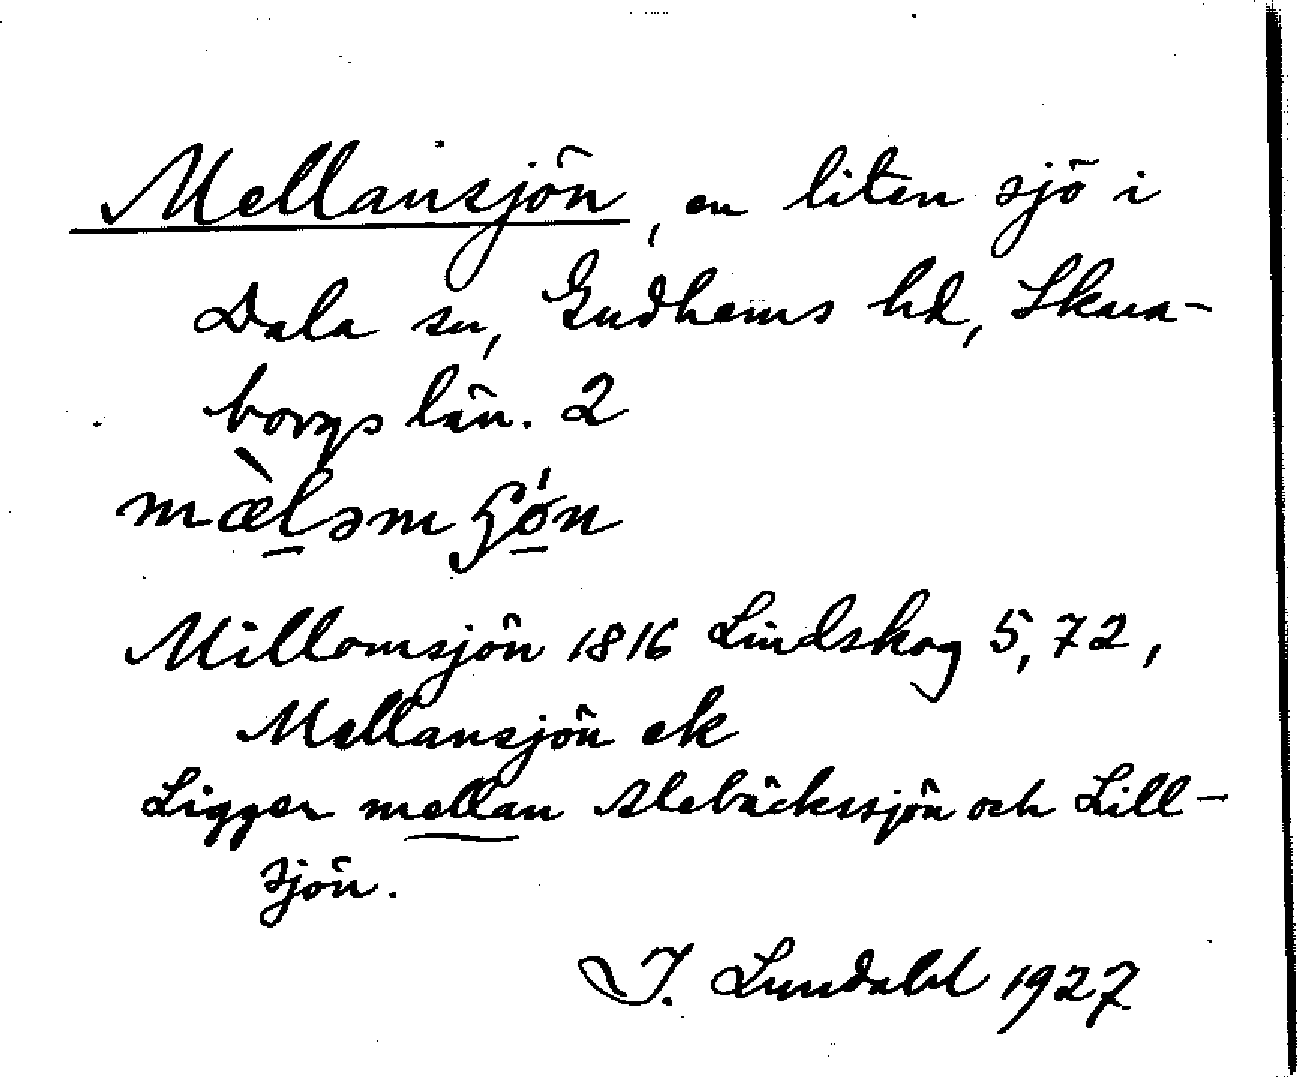 Mellansjön, en liten sjö i
Dala sn, Gudhems hd, Skara-
borgs län. 2
mæ̀ləmʃǿn
Millomsjön 1816 Lindskog 5,72,
Mellansjön ek
Ligger mellan Slebäckssjön och Lill-
sjön.
I. Lundahl 1927